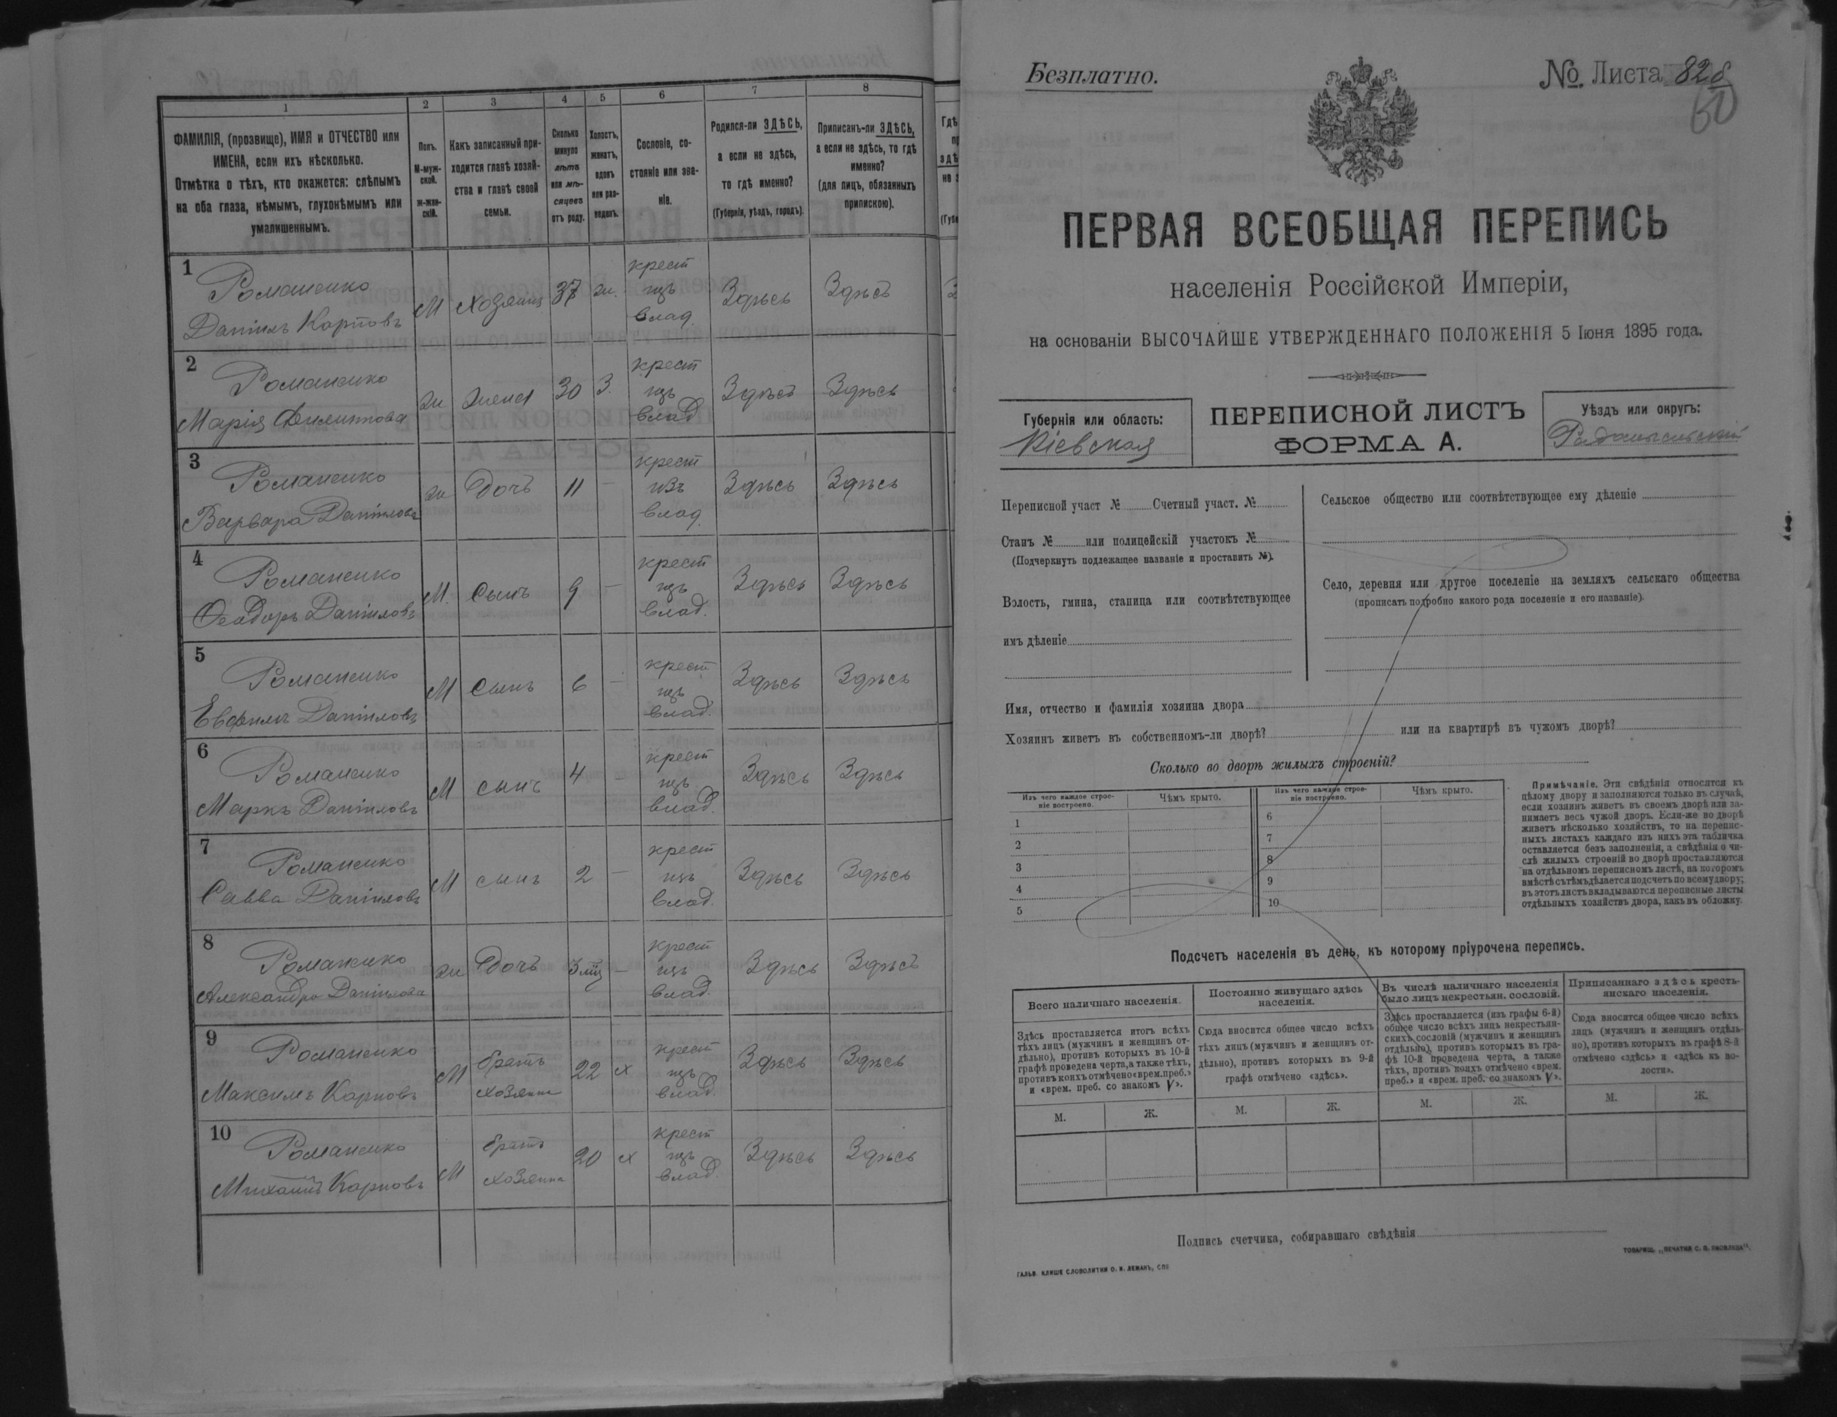 1
2
3
4
5
6
7
8
ФАМИЛІЯ, (прозвище), ИМЯ и ОТЧЕСТВО или
ИМЕНА, если ихъ нѣсколько.
Отмѣтка о тѣхъ, кто окажется: слѣпымъ
на оба глаза, нѣмымъ, глухонѣмымъ или
умалишеннымъ.
Полъ.
М-муж-
ской.
ж-жен-
скій.
Какъ записанный при-
ходится главѣ хозяй-
ства и главѣ своей
семьи.
Сколько
минуло
лѣтъ
или мѣ-
сяцевъ
отъ роду.
Холостъ,
женатъ,
вдовъ
или раз-
веденъ.
Сословіе, со-
стояніе или зва-
ніе.
Родился-ли ЗДѢСЬ,
а если не здѣсь,
то гдѣ именно?
(Губернія, уѣздъ, городъ).
Приписанъ-ли ЗДѢСЬ,
а если не здѣсь, то гдѣ
именно?
(для лицъ, обязанныхъ
припискою).
1
Романенко
Даніилъ Карповъ
М
хозяинъ
37
ж.
крест
изъ
влад
Здѣсь
Здѣсь
2
Романенко
Марія Филиппова
ж
жена
30
З.
крест
изъ
влад.
Здѣсь
Здѣсь
3
Романенко
Варвара Данілова
ж
дочь
11
крест
изъ
влад.
Здѣсь
Здѣсь
4
Романенко
Ѳеодоръ Даніиловъ
М.
сынъ
9
крест
изъ
влад.
Здѣсь
Здѣсь
5
Романенко
Евфимъ Даніиловъ
М
сынъ
6
крест
изъ
влад.
Здѣсь
Здѣсь
6
Романенко
Маркъ Даніиловъ
М
сынъ
4
крест
изъ
влад.
Здѣсь
Здѣсь
7
Романенко
Савва Даніиловъ
М
сынъ
2
крест
изъ
влад.
Здѣсь
Здѣсь
8
Романенко
Александра Даніилова
ж
дочь
3 мц
крест
изъ
влад.
Здѣсь
Здѣсь
9
Романенко
Максимъ Карповъ
М
братъ
хозяина
22
х
крест
изъ
влад.
Здѣсь
Здѣсь
10
Романенко
Михаилъ Карповъ
М
братъ
хозяина
20
х
крест
изъ
влад.
Здѣсь
Здѣсь
Безплатно.
№ Листа 82б
60
ПЕРВАЯ ВСЕОБЩАЯ ПЕРЕПИСЬ
населенія Россійской Имперіи,
на основаніи ВЫСОЧАЙШЕ УТВЕРЖДЕННАГО ПОЛОЖЕНІЯ 5 Іюня 1895 года.
Губернія или область:
Кіевская
ПЕРЕПИСНОЙ ЛИСТЪ
ФОРМА А.
Уѣздъ или округъ:
Радомысльскій
Переписной участ № Счетный участ. №
Станъ № или полицейскій участокъ №
(Подчеркнуть подлежащее названіе и проставить №).
Волость, гмина, станица или соотвѣтствующее
имъ дѣленіе
Сельское общество или соотвѣтствующее ему дѣленіе
Село, деревня или другое поселеніе на земляхъ сельскаго общества
(прописать подробно какого рода поселеніе и его названіе).
Имя, отчество и фамилія хозяина двора
Хозяинъ живетъ въ собственномъ-ли дворѣ? или на квартирѣ въ чужомъ дворѣ?
Сколько во дворѣ жилыхъ строеній?
Изъ чего каждое строе-
ніе построено.
Чѣмъ крыто.
Изъ чего каждое строе-
ніе построено.
Чѣмъ крыто.
1
2
3
4
5
6
7
8
9
10
Примѣчаніе. Эти свѣдѣнія относятся къ
цѣлому двору и заполняются только въ случаѣ,
если хозяинъ живетъ въ своемъ дворѣ или за-
нимаетъ весь чужой дворъ. Если-же во дворѣ
живетъ нѣсколько хозяйствъ, то на перепис-
ныхъ листахъ каждаго изъ нихъ эта табличка
оставляется безъ заполненія, а свѣдѣнія о чи-
слѣ жилыхъ строеній во дворѣ проставляются
на отдѣльномъ переписномъ листѣ, на которомъ
вмѣстѣ съ тѣмъ дѣлается подсчетъ по всему двору;
въ этотъ листъ вкладываются переписные листы
отдѣльныхъ хозяйствъ двора, какъ въ обложку.
Подсчетъ населенія въ день, къ которому пріурочена перепись.
Всего наличнаго населенія.
Здѣсь проставляется итогъ всѣхъ
тѣхъ лицъ (мужчинъ и женщинъ от-
дѣльно), противъ которыхъ въ 10-й
графѣ проведена черта, а также тѣхъ,
противъ коихъ отмѣчено «врем. преб.»
и «врем. преб. со знакомъ V».
Постоянно живущаго здѣсь
населенія.
Сюда вносится общее число всѣхъ
тѣхъ лицъ (мужчинъ и женщинъ от-
дѣльно), противъ которыхъ въ 9-й
графѣ отмѣчено «здѣсь».
Въ числѣ наличнаго населенія
было лицъ некрестьян. сословій.
Здѣсь проставляется (изъ графы 6-й)
общее число всѣхъ лицъ некрестьян-
скихъ сословій (мужчинъ и женщинъ
отдѣльно), противъ которыхъ въ гра-
фѣ 10-й проведена черта, а также
тѣхъ, противъ коихъ отмѣчено «врем.
преб.» и «врем. преб. со знакомъ V».
Приписаннаго здѣсь кресть-
янскаго населенія.
Сюда вносится общее число всѣхъ
лицъ (мужчинъ и женщинъ отдѣль-
но), противъ которыхъ въ графѣ 8-й
отмѣчено «здѣсь» и «здѣсь въ во-
лости».
М.
Ж.
М.
Ж.
М.
Ж.
М.
Ж.
Подпись счетчика, собиравшаго свѣдѣнія
ГАЛЬВ. КЛИШЕ СЛОВОЛИТНИ О. И. ЛЕМАНЪ, СПБ
ТОВАРИЩ. „ПЕЧАТНЯ С. П. ЯКОВЛЕВА“.